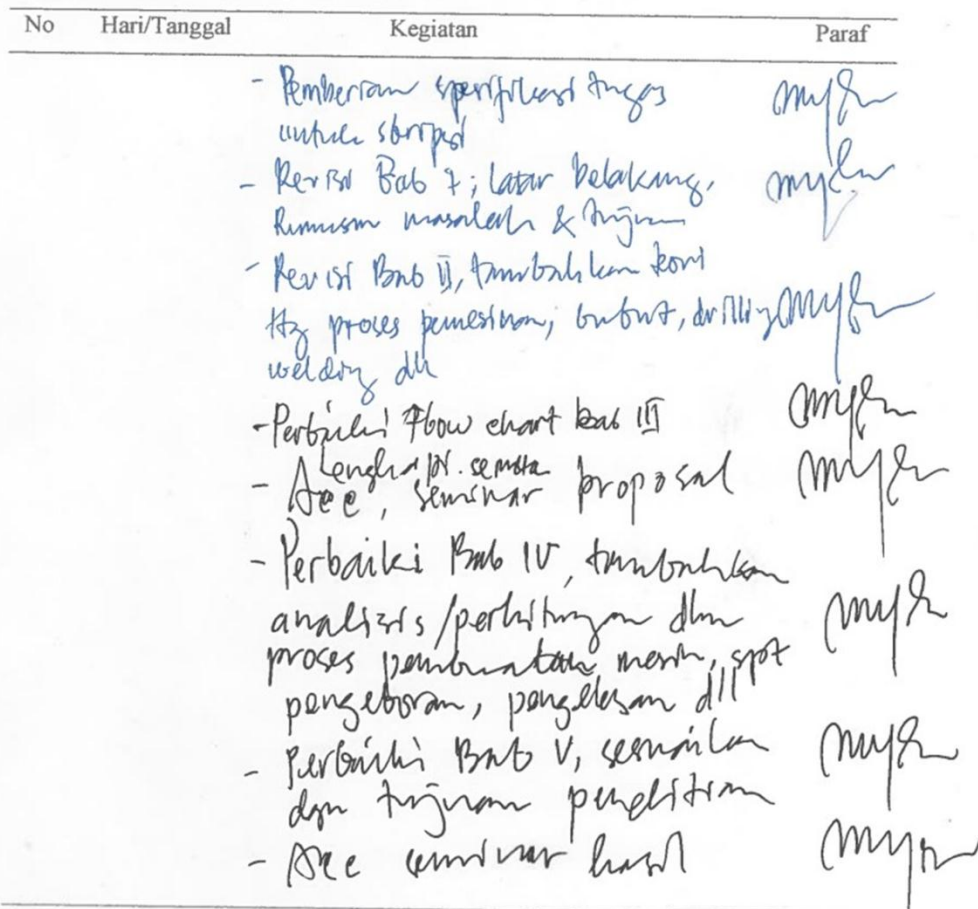 No Hari/Tanggal Kegiatan Paraf
- Pemberian spesifikasi tugas
untuk skripsi
- Revisi Bab I; latar belakang,
Rumusan masalah & tujuan
- Revisi Bab II, tambahkan teori
ttg proses pemesinan, bubut, drilling
welding dll
- Perbaiki Flow chart bab III
Lengkapi semua
- Acc, seminar proposal
- Perbaiki Bab IV, tambahkan
analisis/perhitungan dlm
proses pembuatan mesin, spt
pengeboran, pengelasan dll
- Perbaiki Bab V, sesuaikan
dgn tujuan penelitian
- Acc seminar hasil